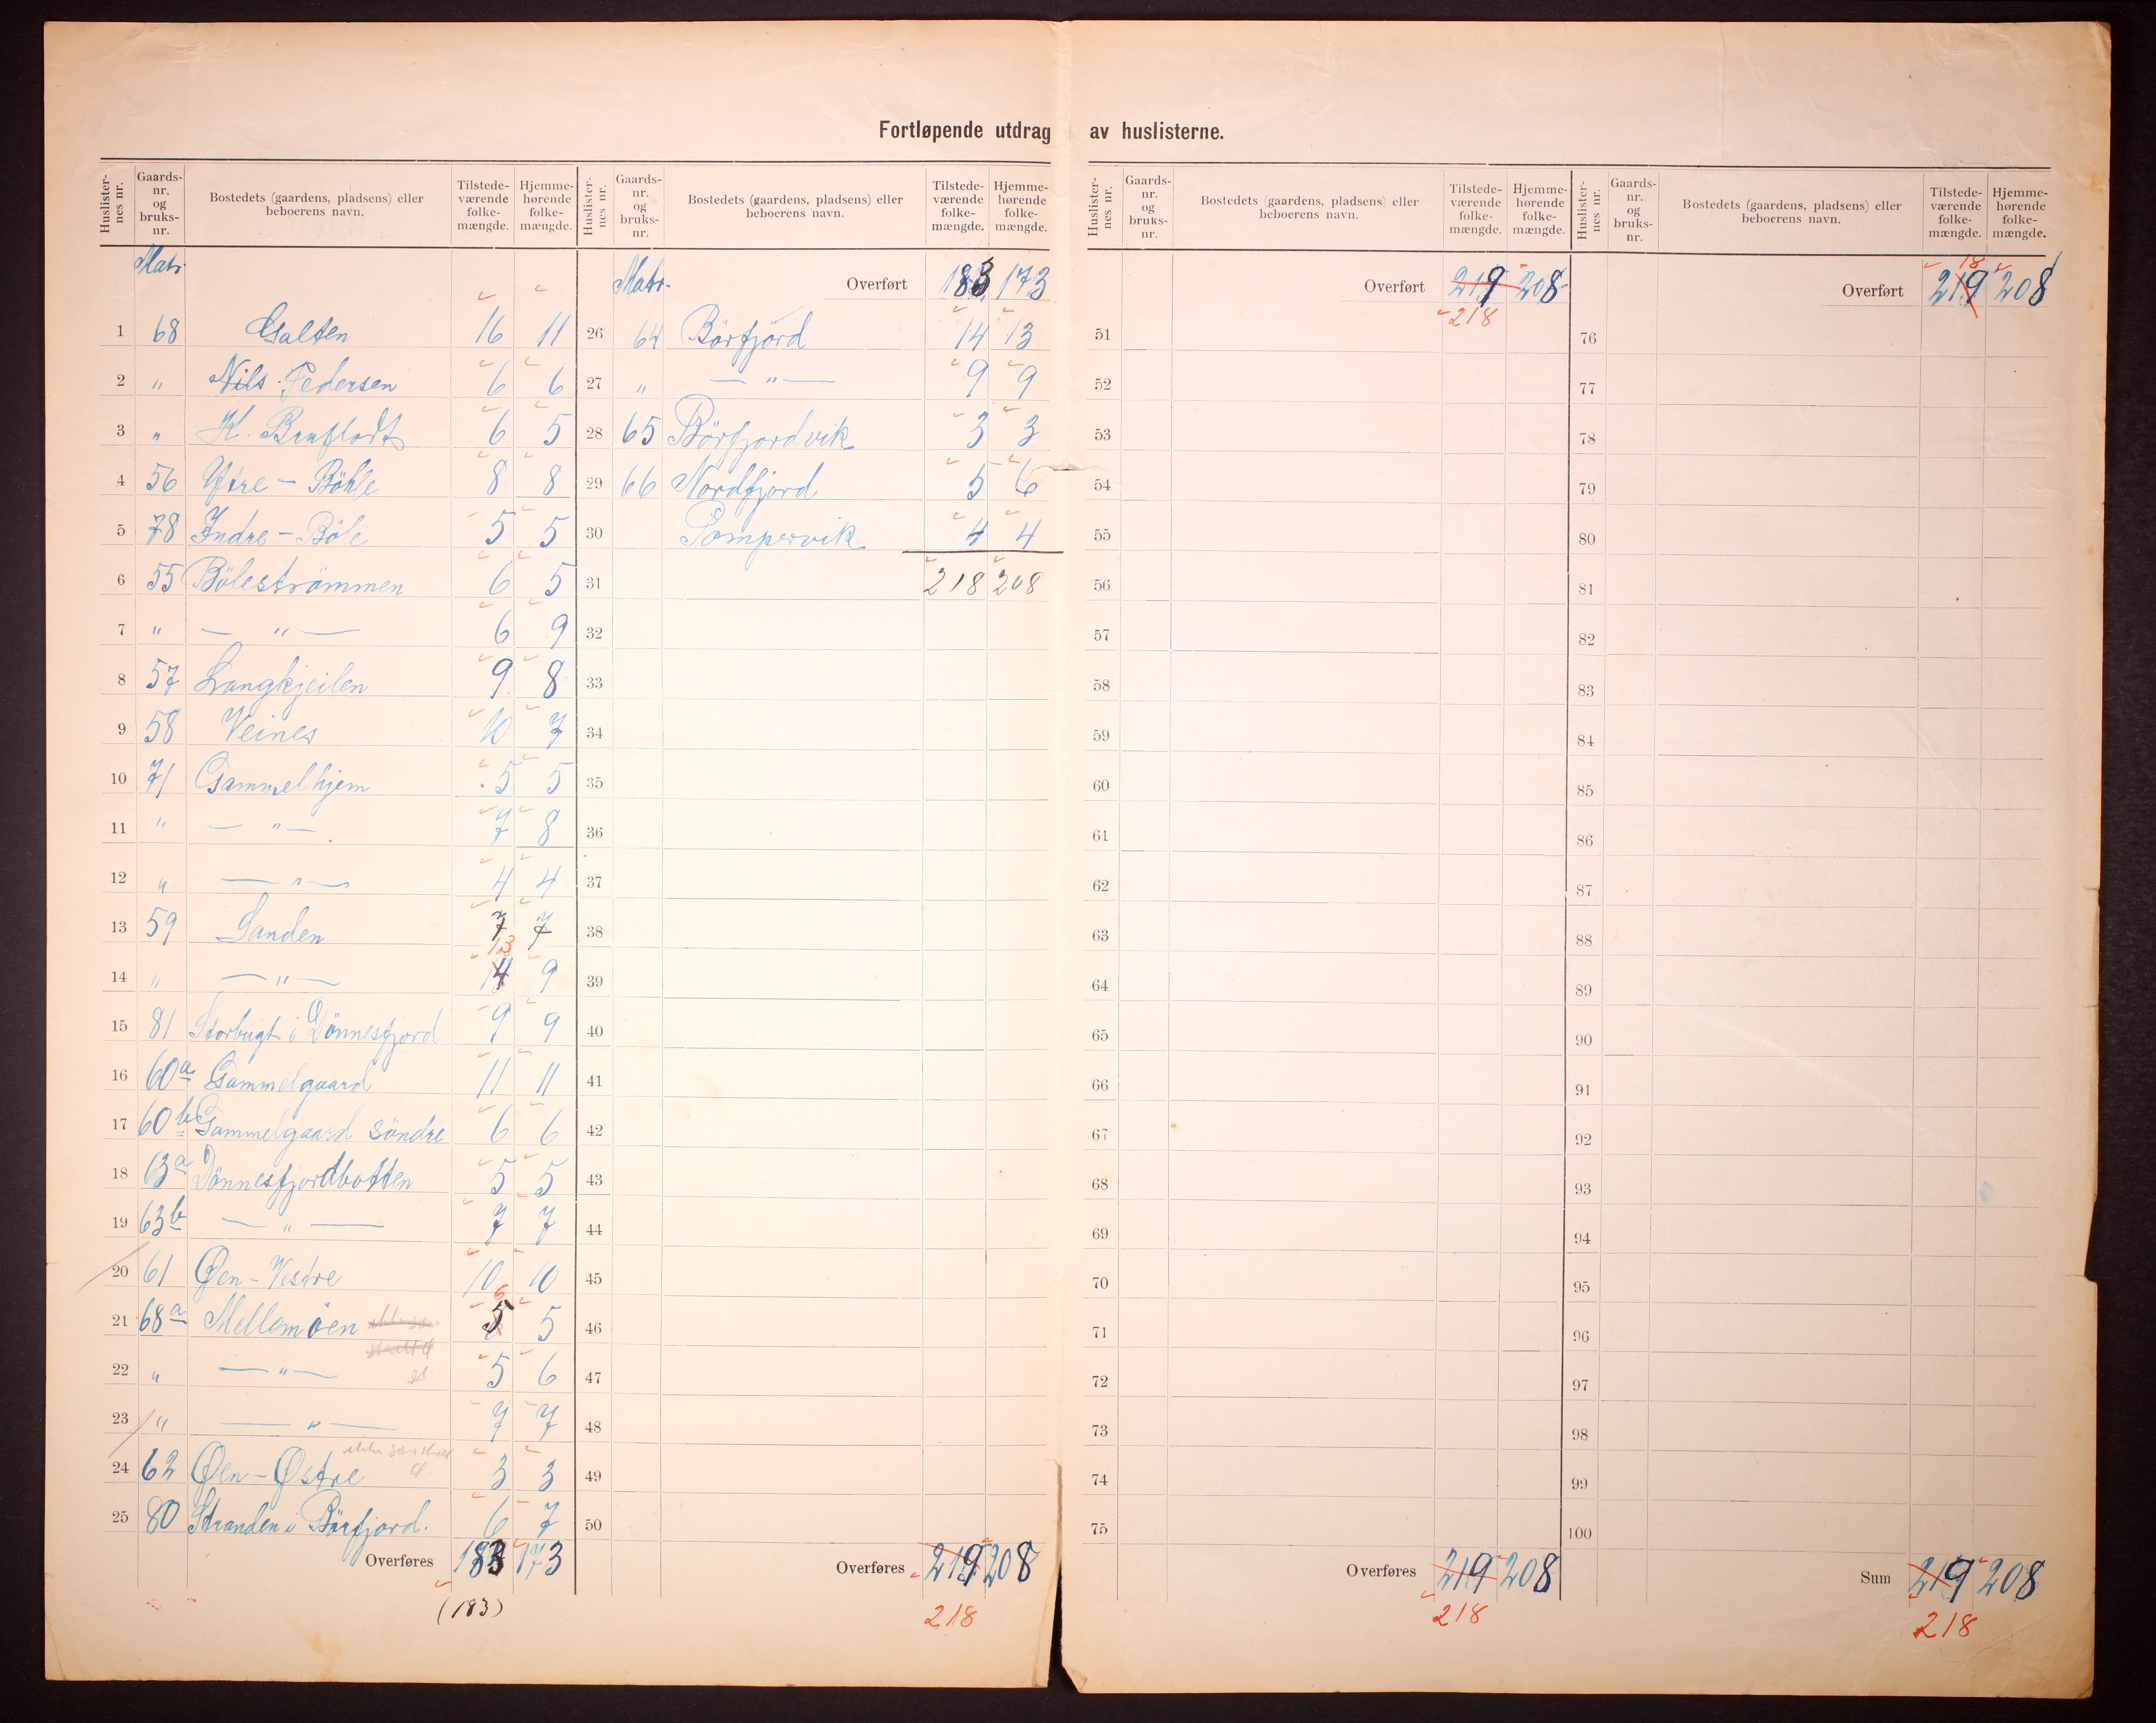 Fortløpende utdrag av huslisterne.
Huslisternes nr. Gaards-nr. og bruks-nr. Bostedets (gaardens, pladsens) eller beboerens navn. Tilstedeværende folkemængde. Hjemmehørende folkemængde.
Matr.
1 68 Galten 16 11
2 " Nils Pedersen 6 6
3 " K. Brufladt 6 5
4 56 Ytre - Böhle 8 8
5 78 Indre - Böle 5 5
6 55 Böleströmmen 6 5
7 " — " — 6 9
8 57 Langkjeilen 9 8
9 58 Veines 10 7
10 71 Gammelhjem 5 5
11 " — " — 7 8
12 " — " — 4 4
13 59 Sanden 7 7
13
14 " — " — 14 9
15 81 Storbugt i Dönnesfjord 9 9
16 60a Gammelgaard 11 11
17 60b Gammelgaard söndre 6 6
18 63a Dönnesfjordbotten 5 5
19 63b — " — 7 7
20 61 Øen - Vestre 10 10
6
21 68a Mellemöen 5 5
22 " — " — 5 6
23 " — " — 7 7
24 62 Øen - Østre 3 3
25 80 Stranden i Börfjord. 6 7
Overføres 183 173
(183)
Huslisternes nr. Gaards-nr. og bruks-nr. Bostedets (gaardens, pladsens) eller beboerens navn. Tilstedeværende folkemængde. Hjemmehørende folkemængde.
Matr. Overført 183 173
26 64 Börfjörd 14 13
27 " — " — 9 9
28 65 Börfjordvik 3 3
29 66 Nordfjord 5 6
30 Pompervik 4 4
31 218 208
32
33
34
35
36
37
38
39
40
41
42
43
44
45
46
47
48
49
50
Overføres 219 208
218
Huslisternes nr. Gaards-nr. og bruks-nr. Bostedets (gaardens, pladsens) eller beboerens navn. Tilstedeværende folkemængde. Hjemmehørende folkemængde.
Overført 219 208
218
51
52
53
54
55
56
57
58
59
60
61
62
63
64
65
66
67
68
69
70
71
72
73
74
75
Overføres 219 208
218
Huslisternes nr. Gaards-nr. og bruks-nr. Bostedets (gaardens, pladsens) eller beboerens navn. Tilstedeværende folkemængde. Hjemmehørende folkemængde.
18
Overført 219 208
76
77
78
79
80
81
82
83
84
85
86
87
88
89
90
91
92
93
94
95
96
97
98
99
100
Sum 219 208
218